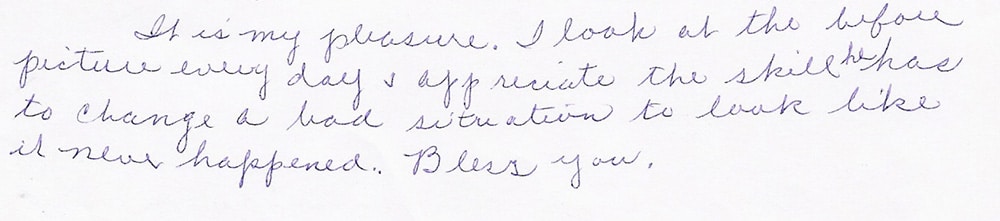 It is my pleasure. I look at the before
picture every day & appreciate the skill he has
to change a bad situation to look like
it never happened. Bless you.